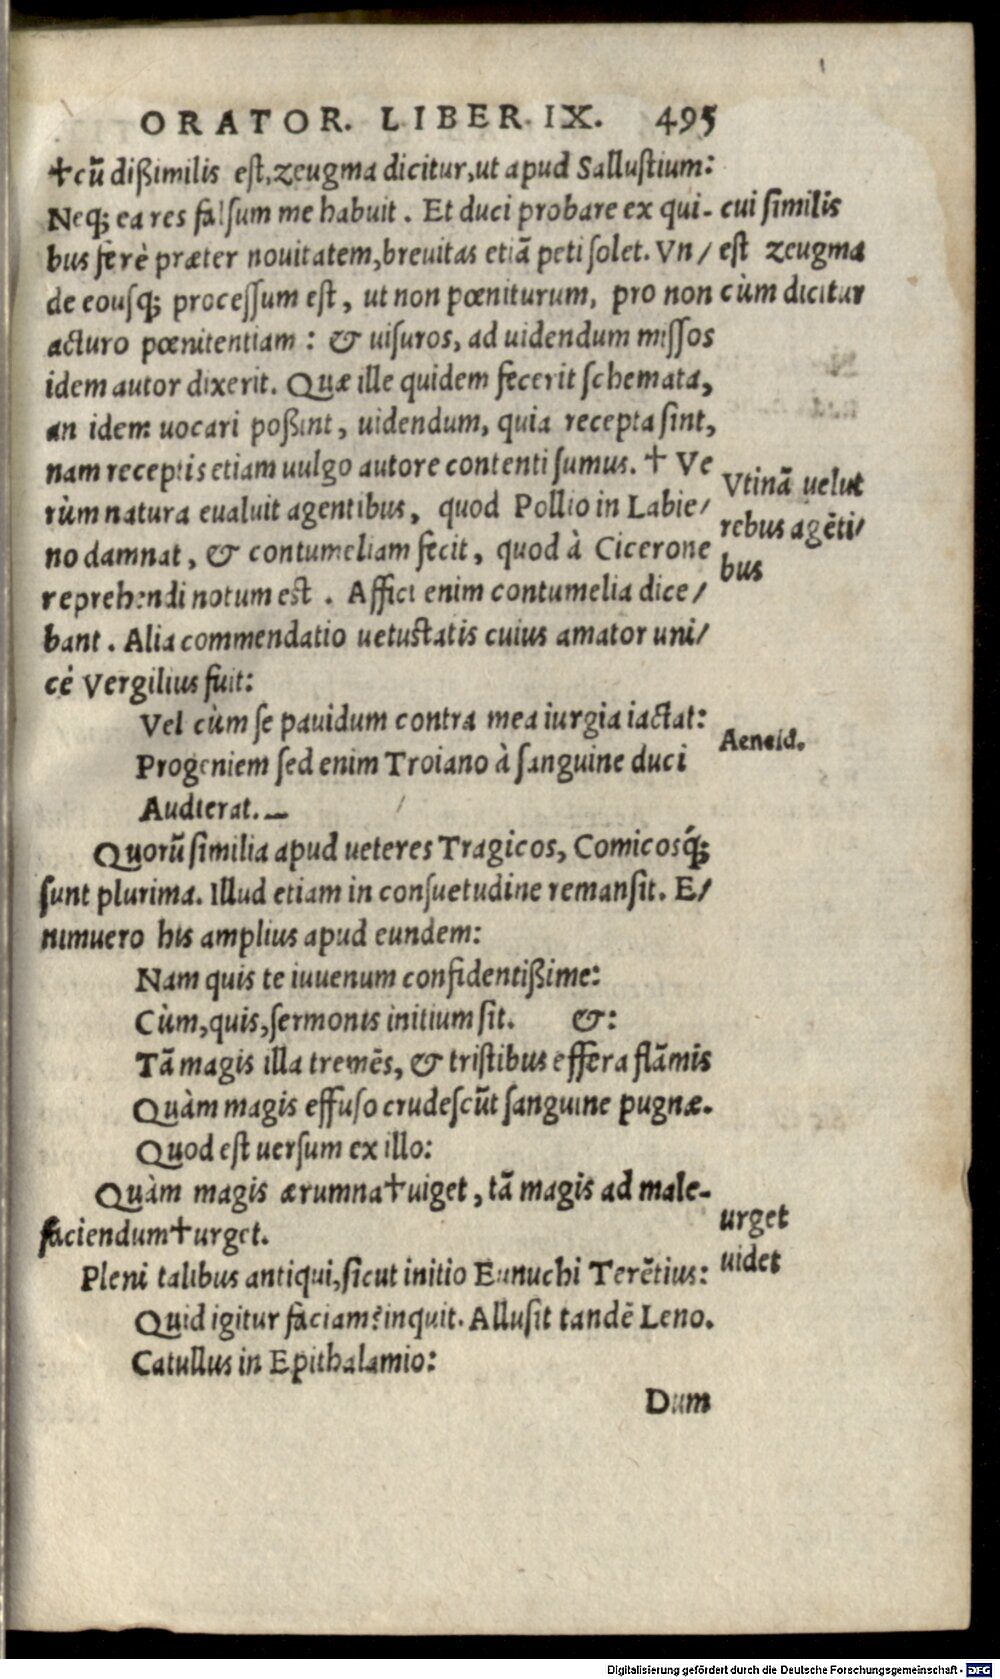 ORATOR. LIBER. IX. 495
✝cū dißimilis est, zeugma dicitur, ut apud Sallustium:
Neq; ea res falsum me habuit. Et duci probare ex qui-
bus ferè præter nouitatem, breuitas etiā peti solet. Vn/
de eousq; processum est, ut non pœniturum, pro non
acturo pœnitentiam: & uisuros, ad uidendum missos
idem autor dixerit. Quæ ille quidem fecerit schemata,
an idem uocari poßint, uidendum, quia recepta sint,
nam receptis etiam uulgo autore contenti sumus. ✝ Ve
rùm natura eualuit agentibus, quod Pollio in Labie/
no damnat, & contumeliam fecit, quod à Cicerone
reprehendi notum est. Affici enim contumelia dice/
bant. Alia commendatio uetustatis cuius amator uni/
cè Vergilius fuit:
Vel cùm se pauidum contra mea iurgia iactat:
Progeniem sed enim Troiano à sanguine duci
Audierat. —
Quorū similia apud ueteres Tragicos, Comicosq́;
sunt plurima. Illud etiam in consuetudine remansit. E/
nimuero his amplius apud eundem:
Nam quis te iuuenum confidentißime:
Cùm, quis, sermonis initium sit. &:
Tā magis illa tremēs, & tristibus effera flāmis
Quàm magis effuso crudescūt sanguine pugnæ.
Quod est uersum ex illo:
Quàm magis ærumna✝uiget, tā magis ad male-
faciendum✝urget.
Pleni talibus antiqui, sicut initio Eunuchi Terētius:
Quid igitur faciam? inquit. Allusit tandē Leno.
Catullus in Epithalamio:
Dum
cui similis
est zeugma
cùm dicitur
Vtinā uelut
rebus agēti/
bus
Aeneid.
urget
uidet
Digitalisierung gefördert durch die Deutsche Forschungsgemeinschaft - DFG